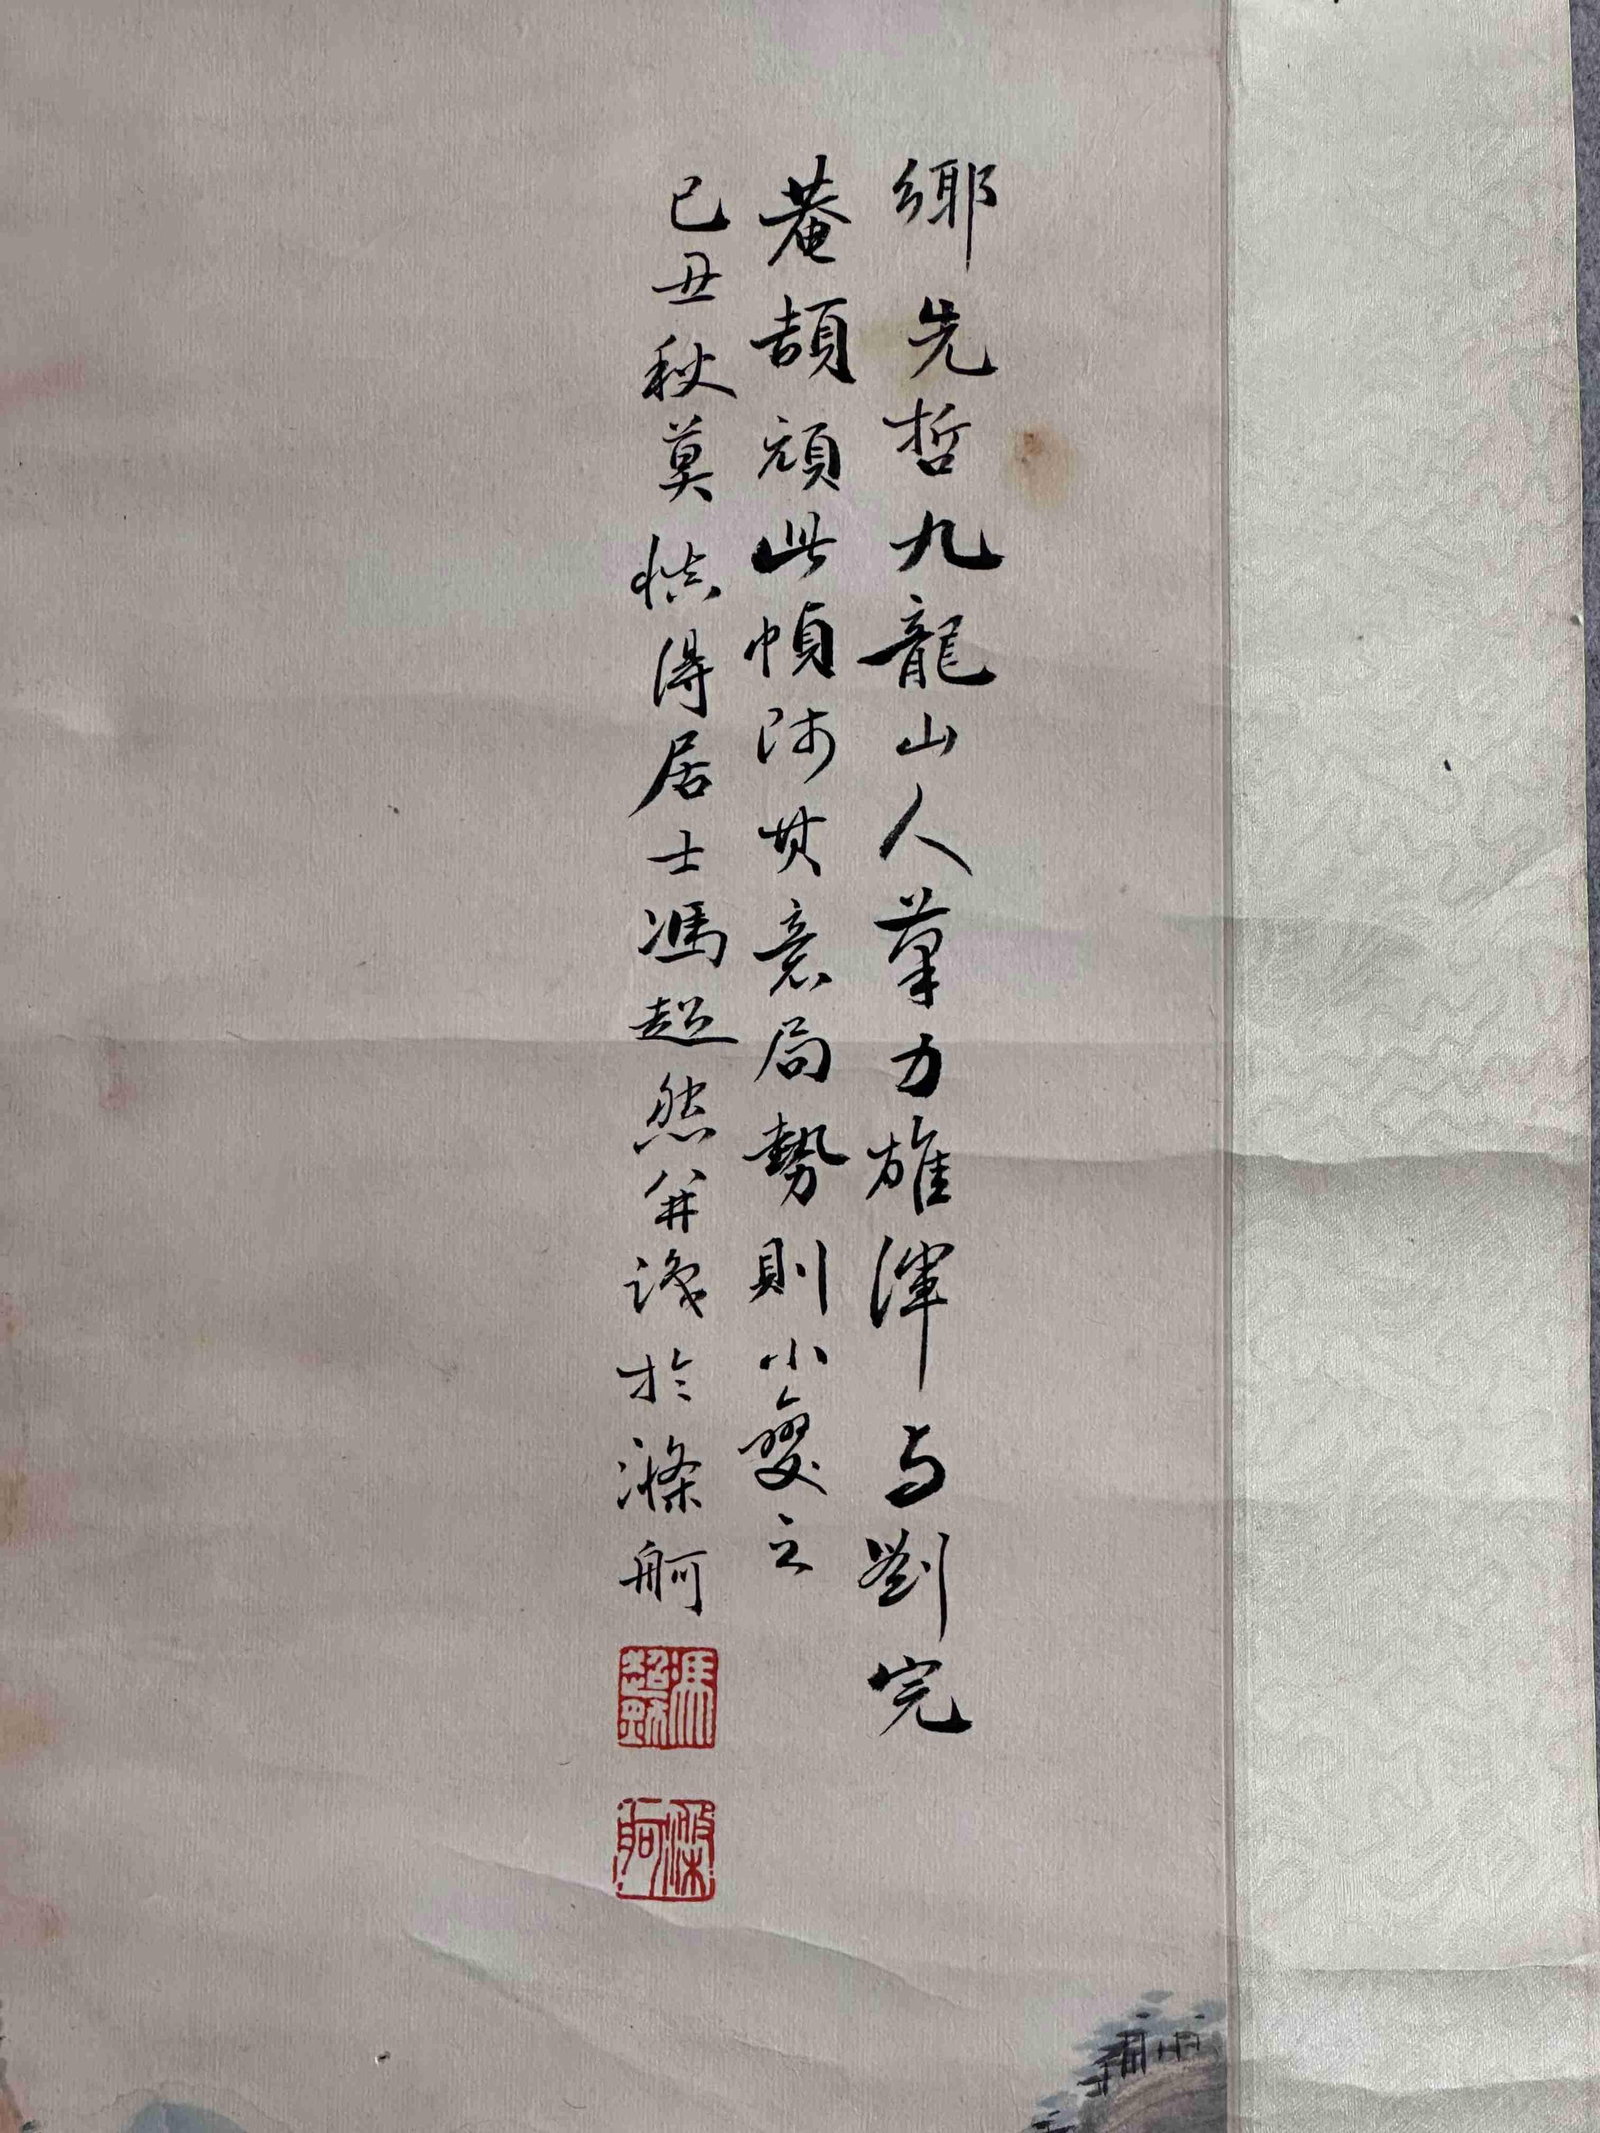 鄉先哲九龍山人筆力雄渾与劉完
菴頡頏此幀師其意局勢則小變之
己丑秋莫慎得居士馮超然并識於滌舸
馮超然
滌舸